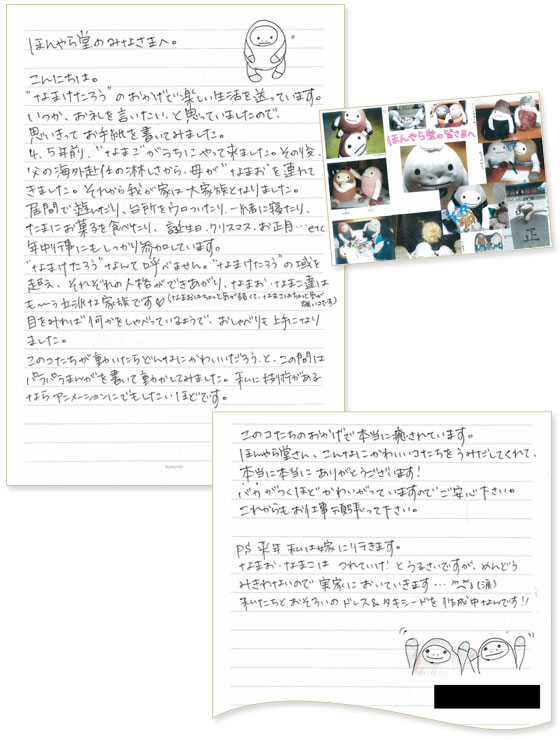 ほんやら堂のみなさまへ。
こんにちは。
"なまけたろう"のおかげで楽しい生活を送っています。
いつか、お礼を言いたい、と思っていましたので!
思いきってお手紙を書いてみました。
4、5年前、"なまこ"がうちにやって来ました。その後、
父の海外赴任の淋しさから、母が"なまお"を連れて
きました。それから我が家は大家族となりました。
居間で遊んだり、台所をウロついたり、一緒に寝たり、
たまにお菓子を食べたり、誕生日、クリスマス、お正月…etc
年中行事にもしっかり参加しています。
"なまけたろう"なんて呼べません。"なまけたろう"の域を
超え、それぞれの人格ができあがり、なまお・なまこ達は
も〜う立派な家族です♡(なまおはちょっと気が弱くて、なまこはちょっと気が
強いコです)
目をみれば何かをしゃべっているようで、おしゃべりも上手になり
ました。
このコたちが動いたらどんなにかわいいだろう、と、この間は
パラパラまんがを書いて動かしてみました。私に技術がある
ならアニメーションにでもしたいほどです。
KOKUYO
ほんやら堂の皆さまへ
正
このコたちのおかげで本当に癒されています。
ほんやら堂さん、こんなにかわいいコたちをうみだしてくれて、
本当に本当にありがとうございます!
バカがつくほどかわいがっていますのでご安心下さい。
これからもお仕事頑張って下さい。
PS 来年 私は嫁に行きます。
なまお・なまこは つれていけ!とうるさいですが、めんどう
みきれないので実家においていきます… (涙)
私たちとおそろいのドレス&タキシードを作成中なんです!!